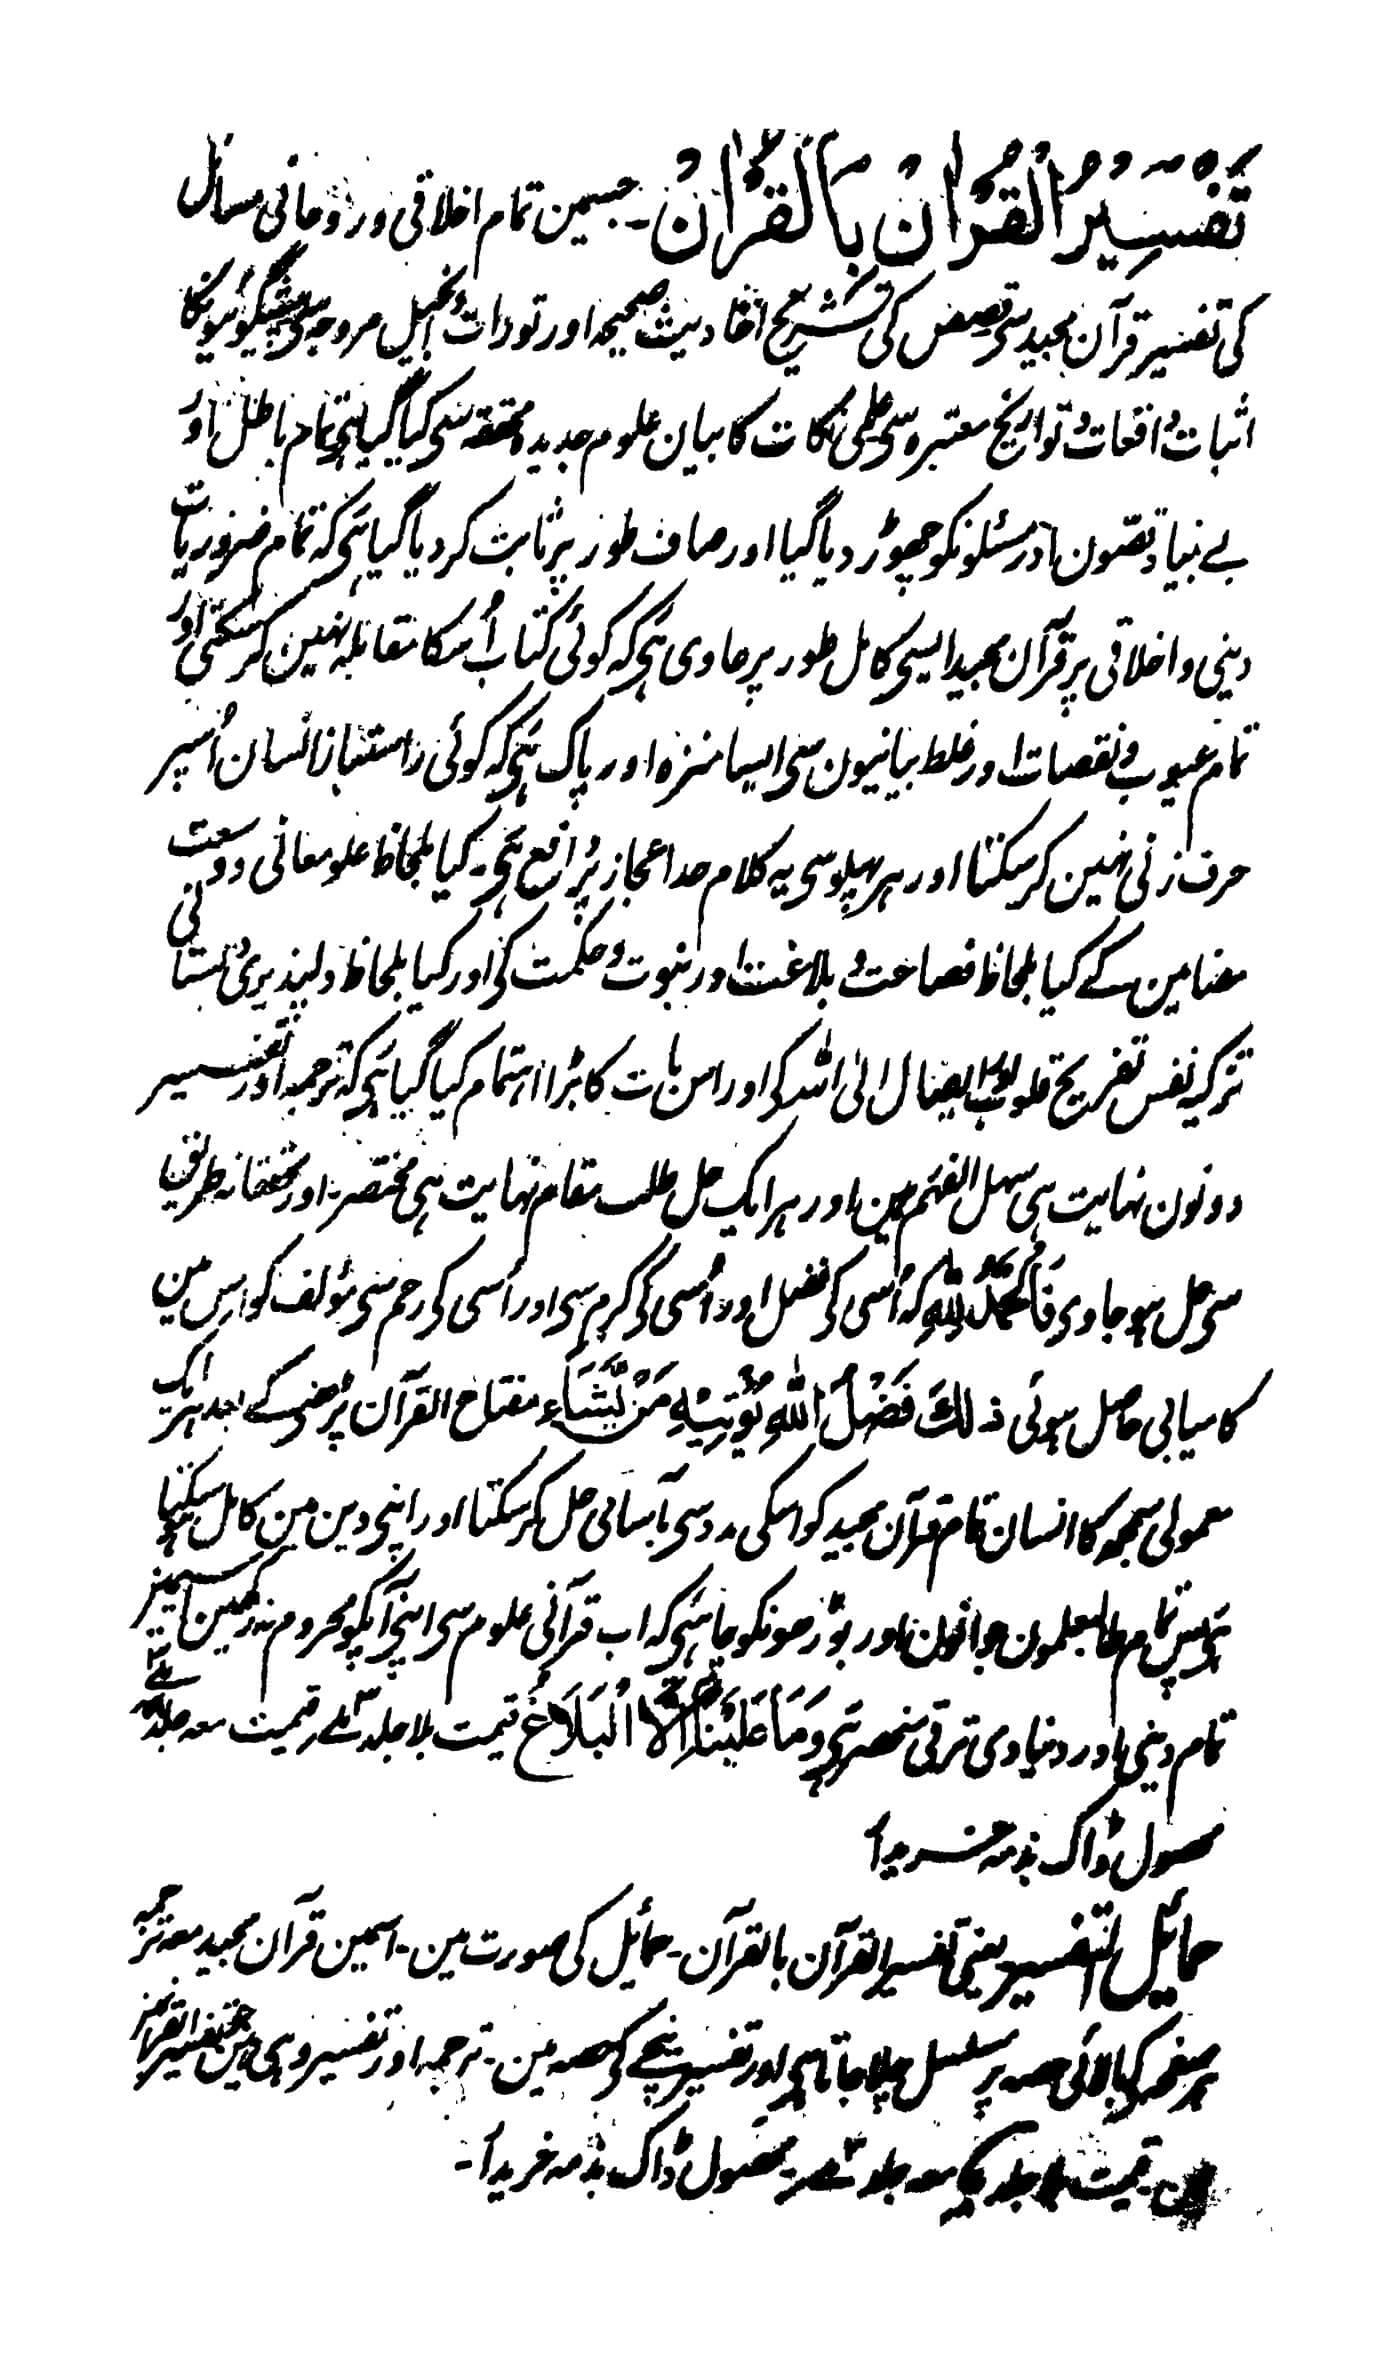 تفسیر القرآن بالقرآن۔ جسمین تمام اخلاقی و روحانی مسائل
کی تفسیر قرآن مجید سی قصص کی تشریح احادیث صحیحہ اور تورات و انجیل مروجہ سی پیشگوئیونکا
اثبات واقعات و تواریخ معتبرہ سی علمی نکات کا بیان علوم جدیدہ محققہ سی کیا گیا ہی تمام باطل اور
بے بنیاد قصّون اور مسئلونکو چھوڑ دیا گیا اور صاف طور پر ثابت کر دیا گیا ہی کہ تمام ضروریات
دینی و اخلاقی پر قرآن مجید ایسی کامل طور پر حاوی ہی کہ کوئی کتاب اُسکا مقابلہ نہین کر سکتی اور
تمام عیوب و نقصات اور غلط بیانیون سی ایسا منزہ اور پاک ہی کہ کوئی راستباز انسان اُسپر
حرف زنی نہین کر سکتا اور ہر پہلو سی یہ کلام حد اعجاز پر واقع ہی۔ کیا بلحاظ علو معانی و وسعت
مضامین کے کیا بلحاظ فصاحت و بلاغت اور نبوت و حکمت کی اور کیا بلحاظ دلپذیری
تزکیہ نفس تفریح قلوب ایصال الی اللہ کی اور اس بات کا بڑا اہتمام کیا گیا ہی کہ ترجمہ اور تفسیر
دونون نہایت ہی سہل الفہم ہین اور ہر ایک حل طلب مقام نہایت ہی مختصر۔ اور محققانہ طریق
سی حل ہو جاوی فَالْحَمْدُ لِلّٰهِ کہ اُسی کی فضل اور اُسی کی کرم سی اور اُسی کی رحم سی مؤلف کو اس مین
کامیابی حاصل ہوئی ذٰلِكَ فَضْلُ اللّٰهِ يُؤْتِيْهِ مَنْ يَّشَآءُ مفتاح القرآن پڑھنی کے بعد ہر ایک
معمولی سمجھ کا انسان تمام قرآن مجید کو اسکی مدد سی بآسانی حل کر سکتا اور اپنی دین مین کامل ہو سکتا
ہی پس تمام طالبعلمون جوانون اور بوڑھونکو چاہئی کہ اب قرآنی علوم سی اپنی آپکو محروم نہ رکھین اسمین
تمام دینی اور دنیاوی ترقی منحصر ہی وَمَا عَلَيْنَا اِلَّا الْبَلَاغُ قیمت بلا جلد قیمت معہ جلد
محصول ڈاک بذمہ خریدار
حمائیل التفسیر یعنی تفسیر القرآن بالقرآن۔ حمائیل کی صورت مین۔ اسمین قرآن مجید معہ ترجمہ
ہر صفحہ کی بالائی حصہ پر مسلسل چلا جاتا ہی اور تفسیر نیچے کی حصہ مین۔ ترجمہ اور تفسیر وہی ہین جو تفسیر القرآن
قیمت بلا جلد معہ جلد محصول ڈاک بذمہ خریدار۔